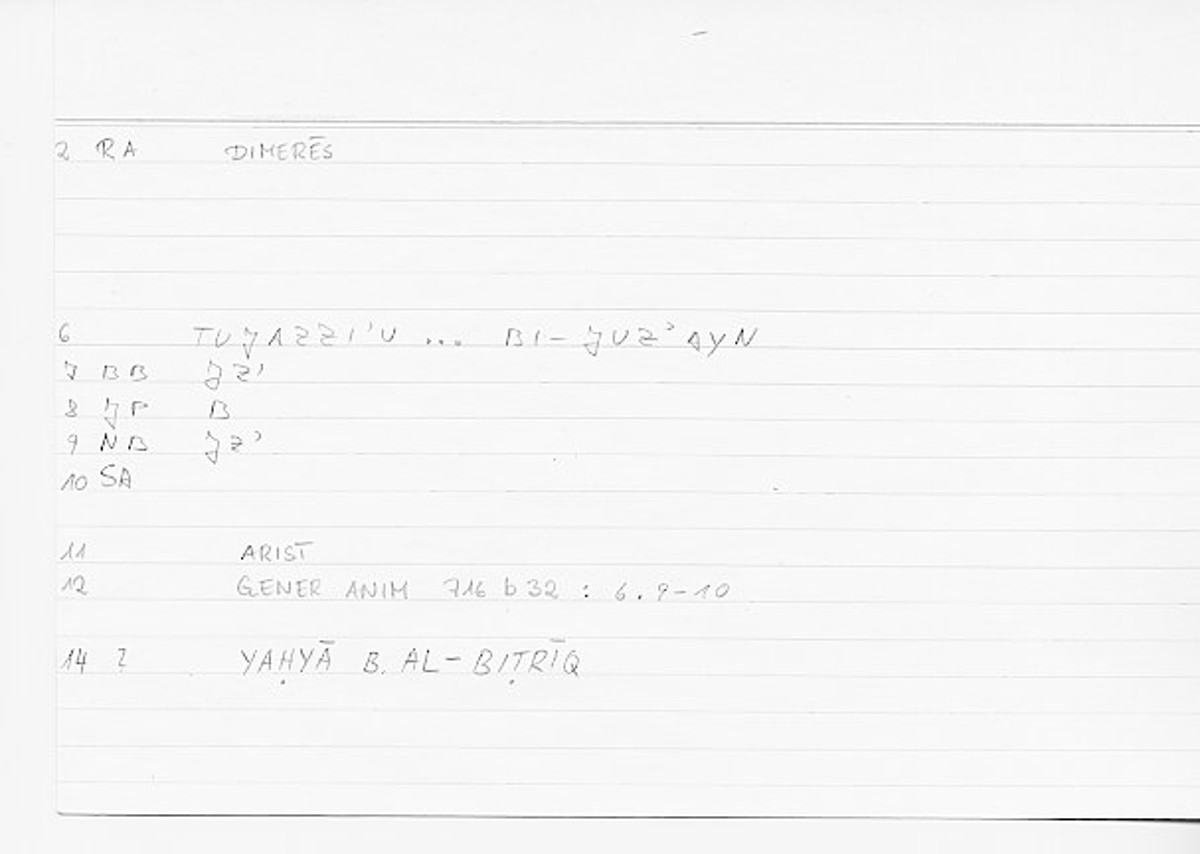 2 RA DIMERĒS
6 TUJAZZI'U ... BI-JUZ'AYN
7 BB JZ'
8 JP B
9 NB JZ'
10 SA
11 ARIST
12 GENER ANIM 716 b 32 : 6.9-10
14 ? YAḤYĀ B. AL-BIṬRĪQ